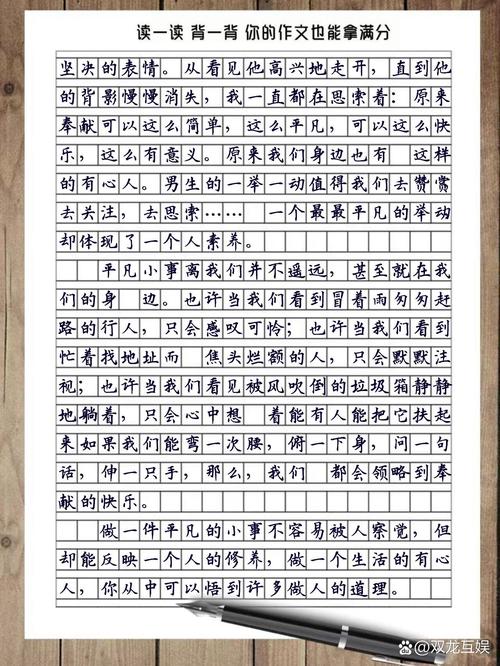 读一读 背一背 你的作文也能拿满分
坚决的表情。从看见他高兴地走开，直到他
的背影慢慢消失，我一直都在思索着：原来
奉献可以这么简单，这么平凡，可以这么快
乐，这么有意义。原来我们身边也有 这样
的有心人。男生的一举一动值得我们去赞赏
去关注，去思索…… 一个最最平凡的举动
却体现了一个人素养。
平凡小事离我们并不遥远，甚至就在我
们的身 边。也许当我们看到冒着雨匆匆赶
路的行人，只会感叹可怜；也许当我们看到
忙着找地址而 焦头烂额的人，只会默默注
视；也许当我们看见被风吹倒的垃圾箱静静
地躺着，只会心中想 着能有人能把它扶起
来如果我们能弯一次腰，俯一下身，问一句
话，伸一只手，那么，我们 都会领略到奉
献的快乐。
做一件平凡的小事不容易被人察觉，但
却能反映一个人的修养，做一个生活的有心
人，你从中可以悟到许多做人的道理。
双龙互娱